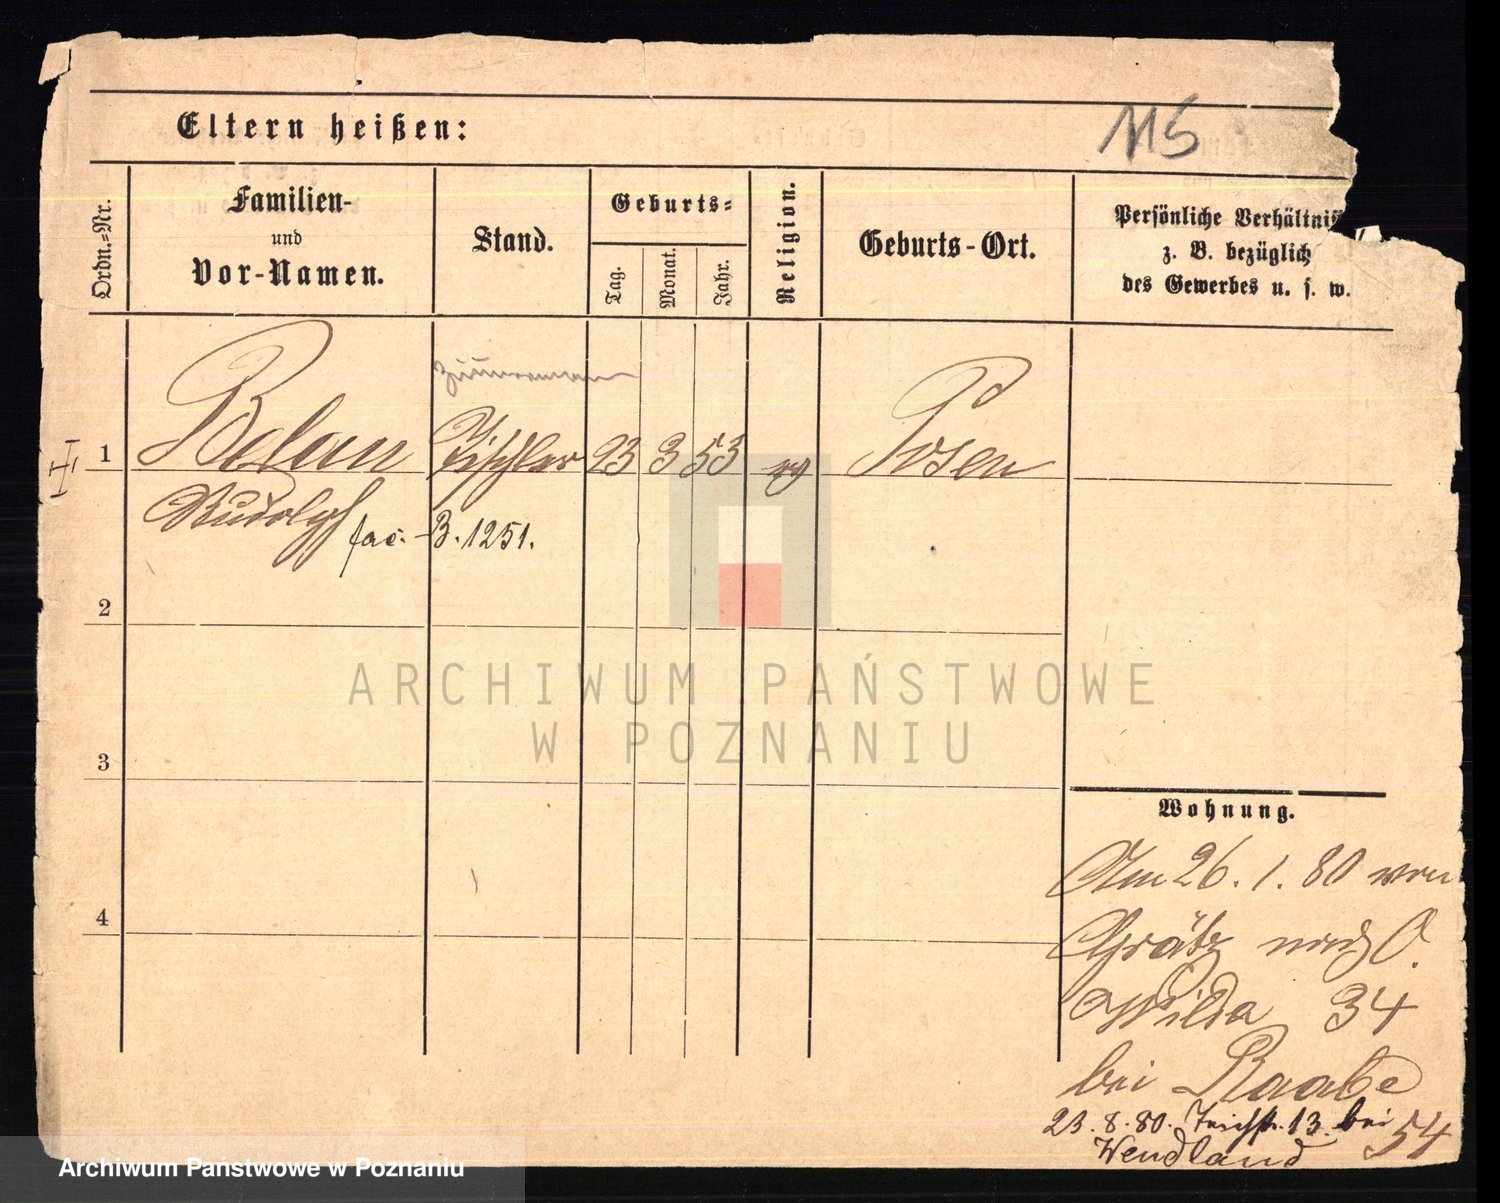 Eltern heißen:
115
Ordn.=Nr.
Familien-
und
Vor-Namen.
Stand.
Geburts=
Tag.
Monat.
Jahr.
Religion.
Geburts-Ort.
Persönliche Verhältniss
z. B. bezüglich
des Gewerbes u. s. w.
1
Belau
Tischler
23
3
53
ev
Posen
Rudolph
fac. B. 1251.
2
3
4
ARCHIWUM PAŃSTWOWE
W POZNANIU
Wohnung.
Am 26. 1. 80 von
Grätz nach O.
Wilda 34
bei Raabe
23. 8. 80. Teichstr. 13. bei
Wendland
54
Archiwum Państwowe w Poznaniu